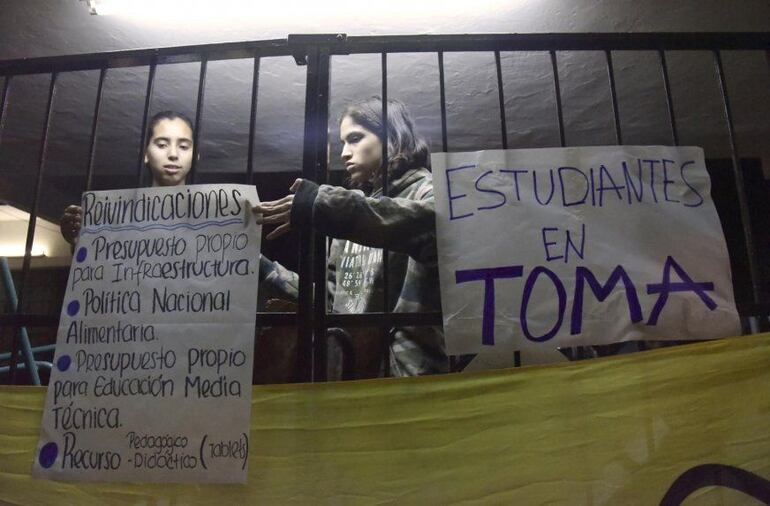 Reivindicaciones
Presupuesto propio
para Infraestructura.
Política Nacional
Alimentaria.
Presupuesto propio
para Educación Media
Técnica.
Recurso Pedagógico
-Didáctico (Tablets)
ESTUDIANTES
EN
TOMA